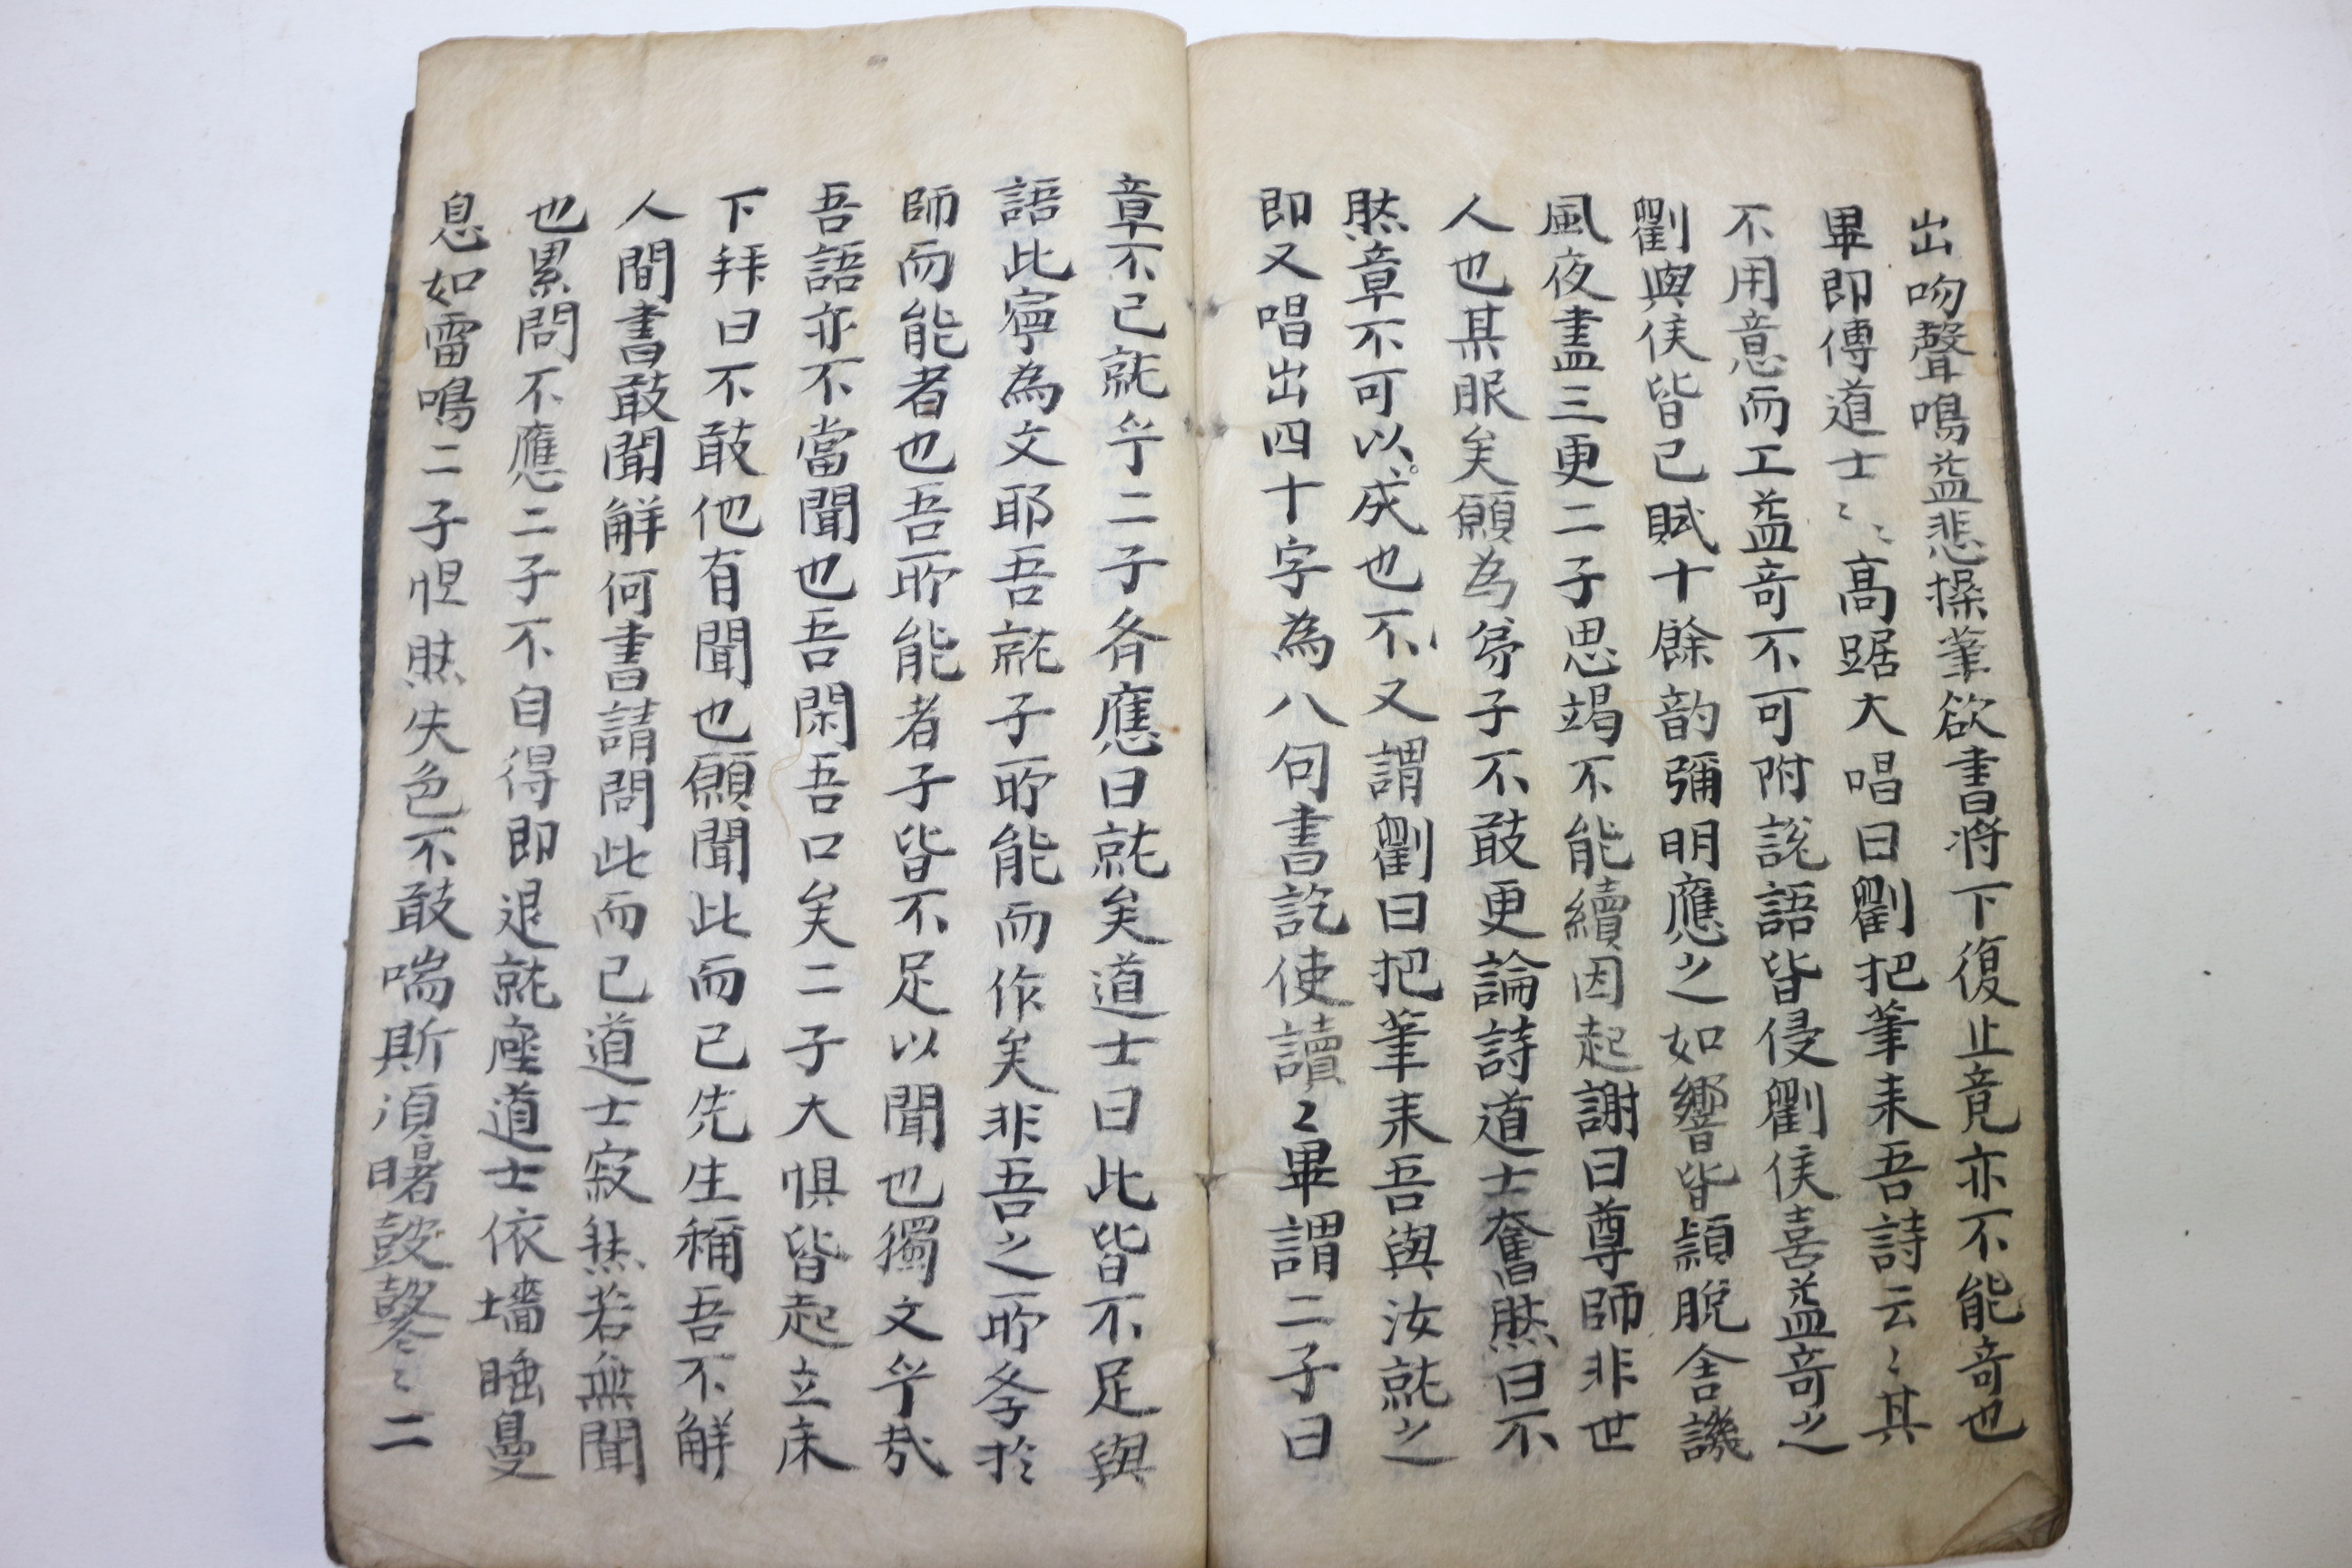 出吻聲鳴益悲操筆欲書將下復止竟亦不能奇也
畢即傳道士〻〻高踞大唱曰劉把筆来吾詩云〻其
不用意而工益奇不可附說語皆侵劉侯喜益奇之
劉與侯皆已賦十餘韵彌明應之如響皆穎脫含譏
風夜盡三更二子思竭不能續因起謝曰尊師非世
人也某服矣願為弟子不敢更論詩道士奮然曰不
然章不可以成也不又謂劉曰把筆来吾與汝就之
即又唱出四十字為八句書訖使讀〻畢謂二子曰
章不已就乎二子齐應曰就矣道士曰此皆不足與
語此寧為文耶吾就子所能而作矣非吾之所学於
師而能者也吾所能者子皆不足以聞也獨文乎哉
吾語亦不當聞也吾閑吾口矣二子大惧皆起立床
下拜曰不敢他有聞也願聞此而已先生稱吾不解
人間書敢聞解何書請問此而已道士寂然若無聞
也累問不應二子不自得即退就座道士依墻睡鼻
息如雷鳴二子怛然失色不敢喘斯須曙鼓鼕〻二